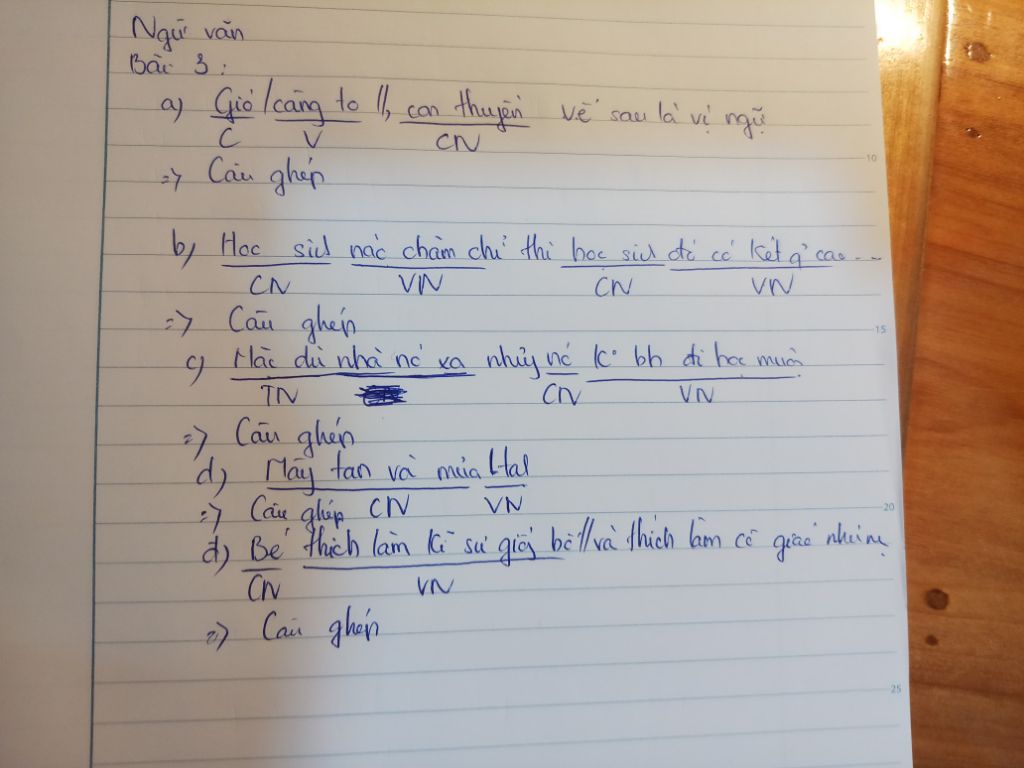 Ngữ văn
Bài 3 :
a) Gió / càng to //, con thuyền về sau là vị ngữ
C V CN
=> Câu ghép
10
b) Học sinh nào chăm chỉ thì học sinh đó có kết q̉ cao...
CN VN CN VN
=> Câu ghép
15
c) Mặc dù nhà nó xa nhưng nó k° bh đi học muộn
TN CN VN
=> Câu ghép
d) Mây tan và mưa tạnh
=> Câu ghép CN VN
20
đ) Bé thích làm kĩ sư giống bố // và thích làm cô giáo như mẹ
CN VN
=> Câu ghép
25